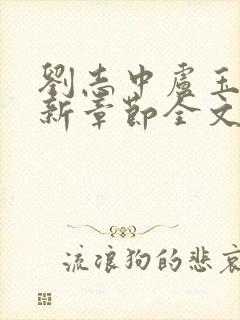 劉志中盧玉
新章節全文
流浪狗的悲哀